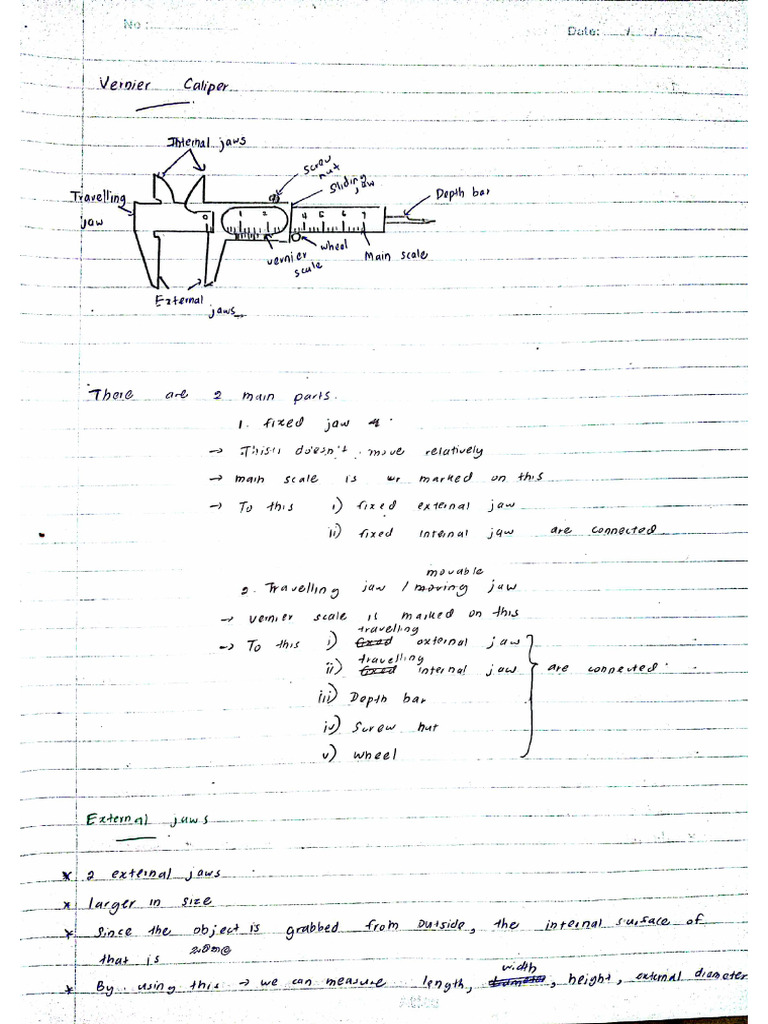 No :
Date: / /
Vernier Caliper
Internal jaws
screw nut
sliding jaw
Depth bar
Travelling jaw
0 1 2 4 5 6 7
wheel
vernier scale
Main scale
External jaws
There are 2 main parts.
1. fixed jaw
→ This is doesn't move relatively
→ main scale is marked on this
→ To this i) fixed external jaw
ii) fixed internal jaw are connected
movable
2. Travelling jaw / moving jaw
→ vernier scale is marked on this
travelling
→ To this i) fixed external jaw
travelling
ii) fixed internal jaw are connected
iii) Depth bar
iv) Screw nut
v) wheel
External jaws
* 2 external jaws
* larger in size
* Since the object is grabbed from outside, the internal surface of
that is
width
* By using this → we can measure length, diameter, height, external diameter